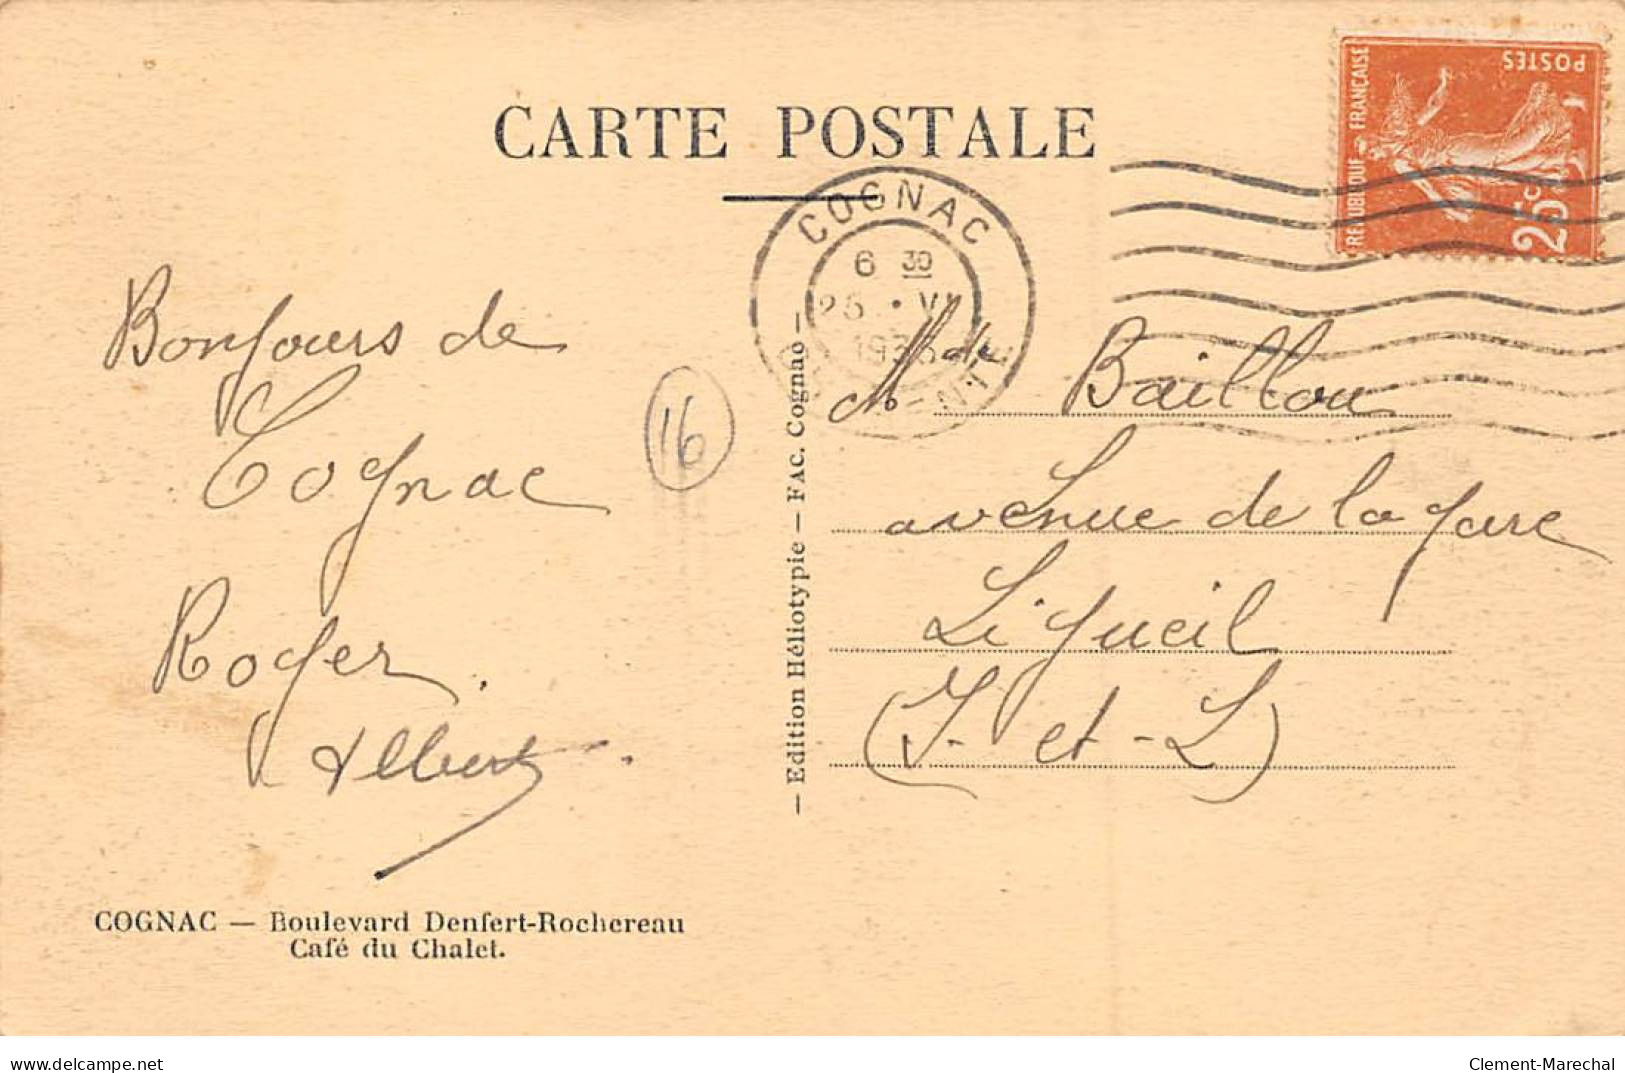 CARTE POSTALE
REPUBLIQUE FRANÇAISE
POSTES
25c
COGNAC
6 30
25 • VI
Bonjours de
Cognac
Roger
Albert
16
— Edition Héliotypie — FAC. Cognac —
Mde Baillou
avenue de la gare
Ligueil
(I- et -L)
COGNAC — Boulevard Denfert-Rochereau
Café du Chalet.
delcampe.net
Clement-Marechal